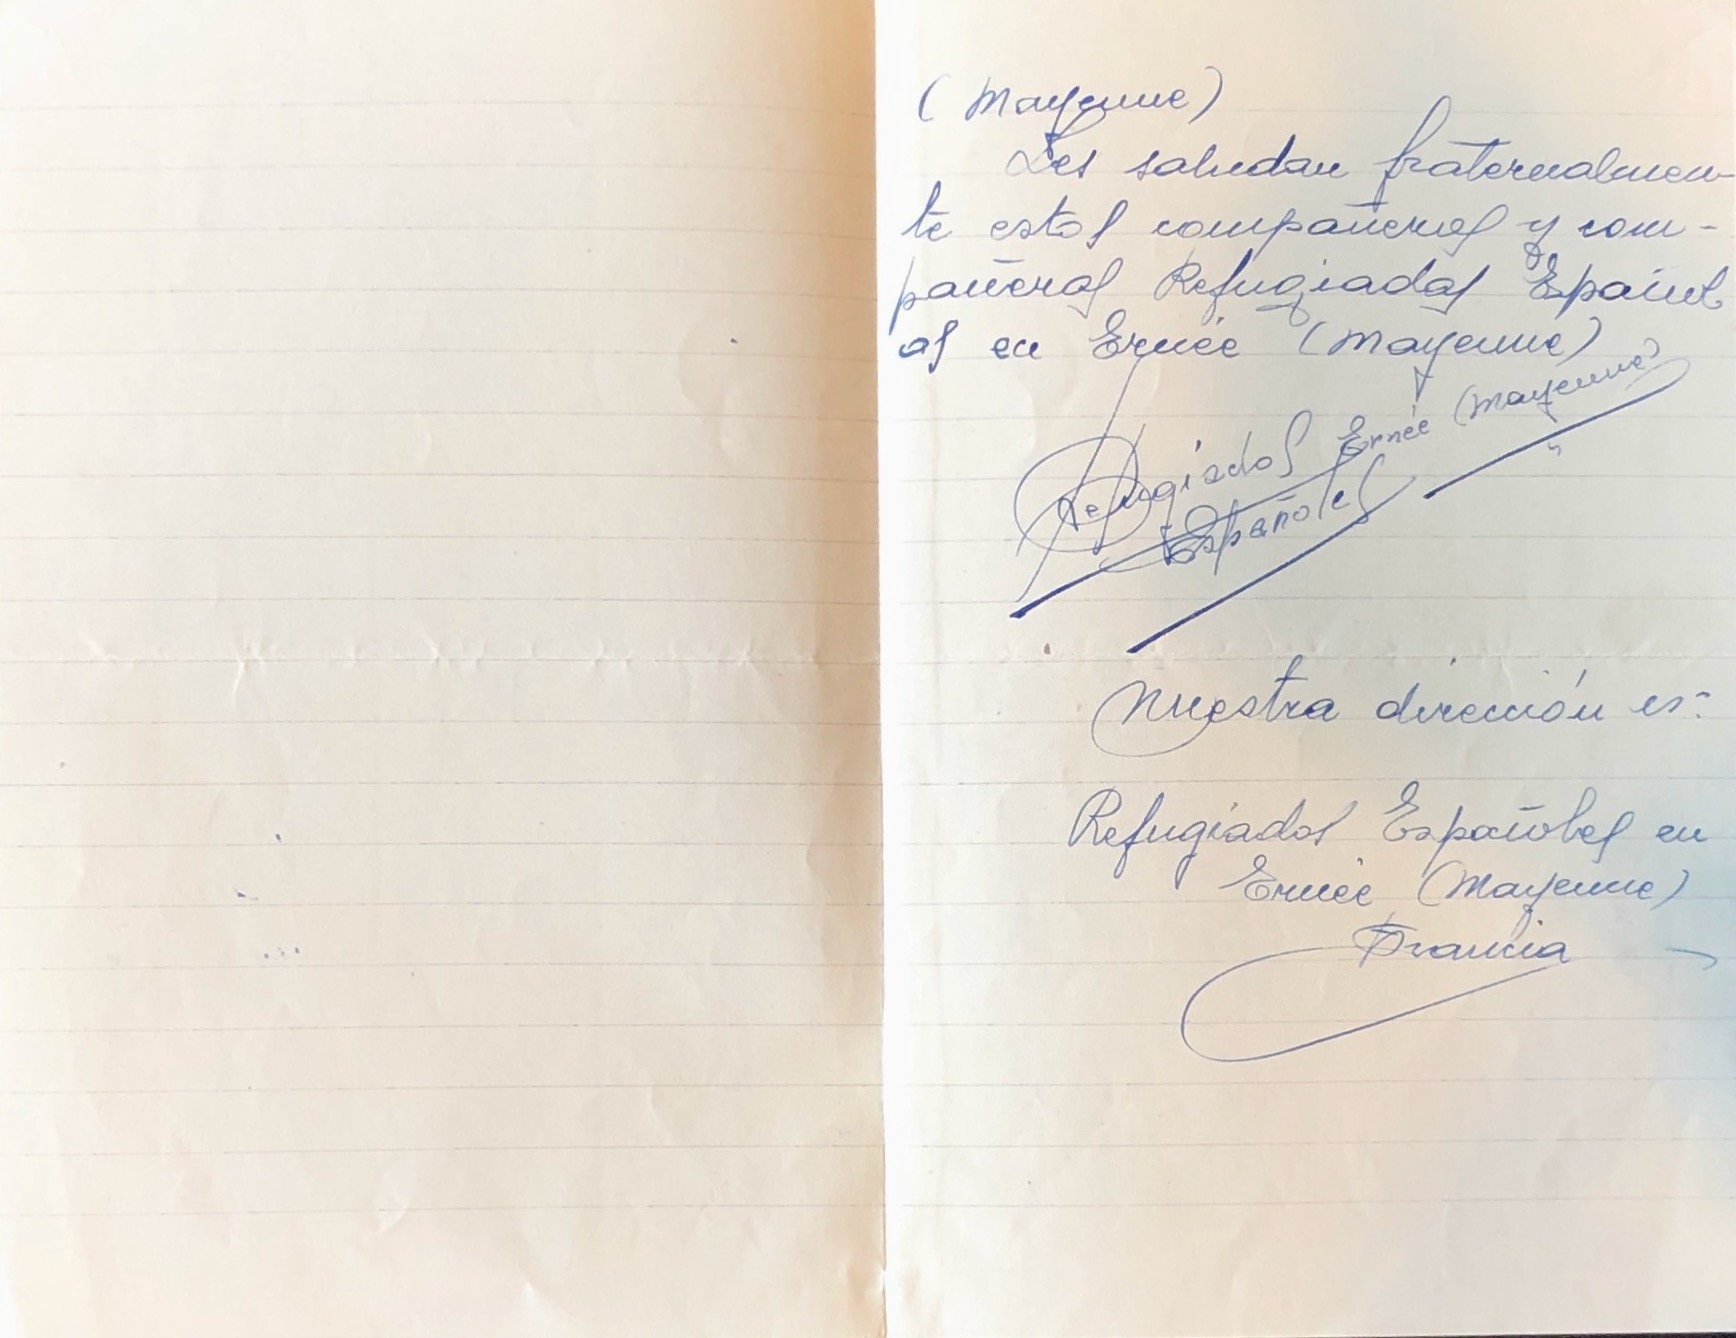 (Mayenne)
Les saludan fraternalmen-
te estos compañeros y com-
pañeras Refugiadas Españo
as en Ernée (Mayenne)
Refugiados Ernée (Mayenne)
Españoles
Nuestra dirección es:
Refugiados Españoles en
Ernée (Mayenne)
Francia